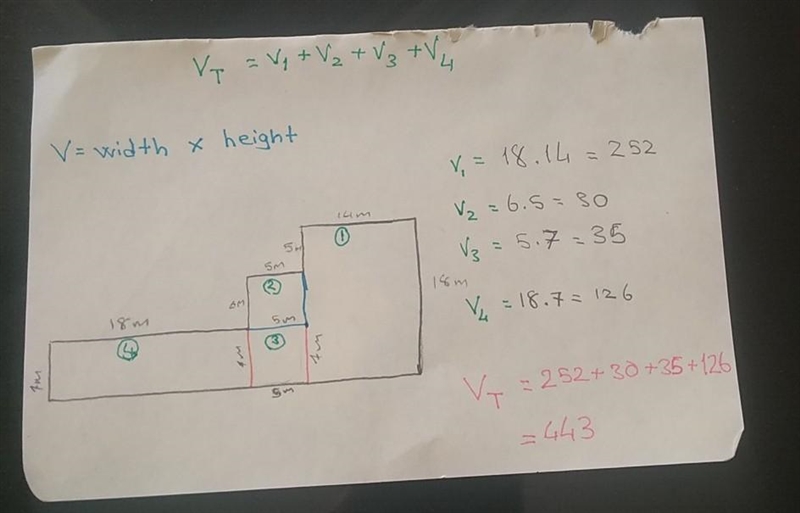 V_T = V_1 + V_2 + V_3 + V_4
V = width × height
V_1 = 18.14 = 252
V_2 = 6.5 = 30
V_3 = 5.7 = 35
V_4 = 18.7 = 126
V_T = 252 + 30 + 35 + 126
= 443
14m
1
5m
5m
2
18m
5m
18m
4
3
7m
7m
7m
5m